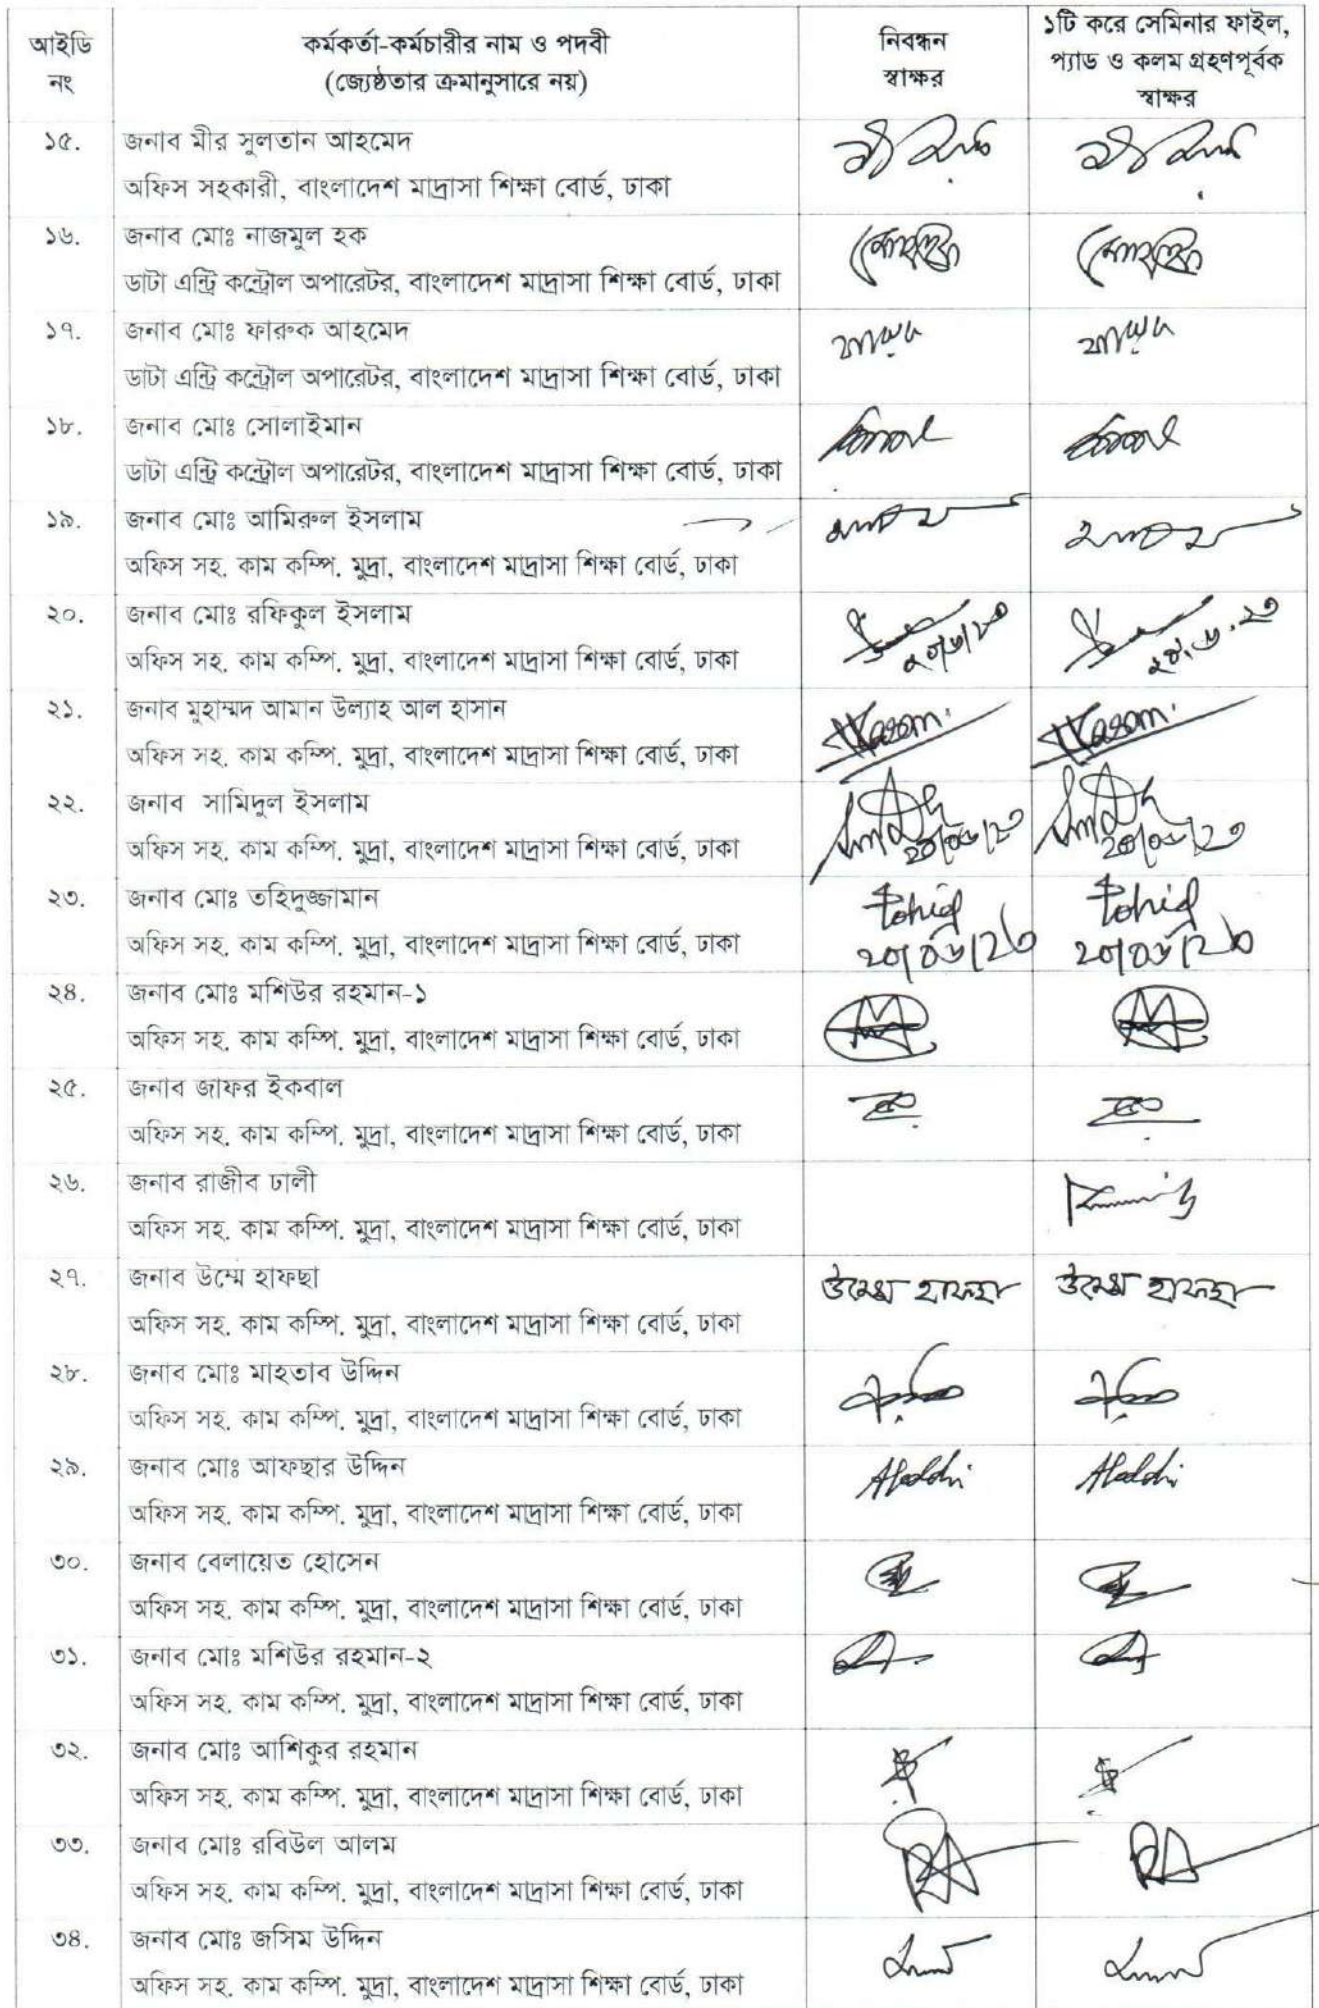 আইডি
নং
কর্মকর্তা-কর্মচারীর নাম ও পদবী
(জ্যেষ্ঠতার ক্রমানুসারে নয়)
নিবন্ধন
স্বাক্ষর
১টি করে সেমিনার ফাইল,
প্যাড ও কলম গ্রহণপূর্বক
স্বাক্ষর
১৫. জনাব মীর সুলতান আহমেদ
অফিস সহকারী, বাংলাদেশ মাদ্রাসা শিক্ষা বোর্ড, ঢাকা
১৬. জনাব মোঃ নাজমুল হক
ডাটা এন্ট্রি কন্ট্রোল অপারেটর, বাংলাদেশ মাদ্রাসা শিক্ষা বোর্ড, ঢাকা
১৭. জনাব মোঃ ফারুক আহমেদ
ডাটা এন্ট্রি কন্ট্রোল অপারেটর, বাংলাদেশ মাদ্রাসা শিক্ষা বোর্ড, ঢাকা
১৮. জনাব মোঃ সোলাইমান
ডাটা এন্ট্রি কন্ট্রোল অপারেটর, বাংলাদেশ মাদ্রাসা শিক্ষা বোর্ড, ঢাকা
১৯. জনাব মোঃ আমিরুল ইসলাম
অফিস সহ. কাম কম্পি. মুদ্রা, বাংলাদেশ মাদ্রাসা শিক্ষা বোর্ড, ঢাকা
২০. জনাব মোঃ রফিকুল ইসলাম
অফিস সহ. কাম কম্পি. মুদ্রা, বাংলাদেশ মাদ্রাসা শিক্ষা বোর্ড, ঢাকা
২০/৬/২৩ ২০.৬.২৩
২১. জনাব মুহাম্মদ আমান উল্যাহ আল হাসান
অফিস সহ. কাম কম্পি. মুদ্রা, বাংলাদেশ মাদ্রাসা শিক্ষা বোর্ড, ঢাকা
২২. জনাব সামিদুল ইসলাম
অফিস সহ. কাম কম্পি. মুদ্রা, বাংলাদেশ মাদ্রাসা শিক্ষা বোর্ড, ঢাকা
২০/০৬/২৩ ২০/০৬/২৩
২৩. জনাব মোঃ তহিদুজ্জামান Tohid Tohid
অফিস সহ. কাম কম্পি. মুদ্রা, বাংলাদেশ মাদ্রাসা শিক্ষা বোর্ড, ঢাকা ২০/০৬/২৩ ২০/০৬/২৩
২৪. জনাব মোঃ মশিউর রহমান-১
অফিস সহ. কাম কম্পি. মুদ্রা, বাংলাদেশ মাদ্রাসা শিক্ষা বোর্ড, ঢাকা
২৫. জনাব জাফর ইকবাল
অফিস সহ. কাম কম্পি. মুদ্রা, বাংলাদেশ মাদ্রাসা শিক্ষা বোর্ড, ঢাকা
২৬. জনাব রাজীব ঢালী
অফিস সহ. কাম কম্পি. মুদ্রা, বাংলাদেশ মাদ্রাসা শিক্ষা বোর্ড, ঢাকা
২৭. জনাব উম্মে হাফছা উম্মে হাফছা উম্মে হাফছা
অফিস সহ. কাম কম্পি. মুদ্রা, বাংলাদেশ মাদ্রাসা শিক্ষা বোর্ড, ঢাকা
২৮. জনাব মোঃ মাহতাব উদ্দিন
অফিস সহ. কাম কম্পি. মুদ্রা, বাংলাদেশ মাদ্রাসা শিক্ষা বোর্ড, ঢাকা
২৯. জনাব মোঃ আফছার উদ্দিন
অফিস সহ. কাম কম্পি. মুদ্রা, বাংলাদেশ মাদ্রাসা শিক্ষা বোর্ড, ঢাকা
৩০. জনাব বেলায়েত হোসেন
অফিস সহ. কাম কম্পি. মুদ্রা, বাংলাদেশ মাদ্রাসা শিক্ষা বোর্ড, ঢাকা
৩১. জনাব মোঃ মশিউর রহমান-২
অফিস সহ. কাম কম্পি. মুদ্রা, বাংলাদেশ মাদ্রাসা শিক্ষা বোর্ড, ঢাকা
৩২. জনাব মোঃ আশিকুর রহমান
অফিস সহ. কাম কম্পি. মুদ্রা, বাংলাদেশ মাদ্রাসা শিক্ষা বোর্ড, ঢাকা
৩৩. জনাব মোঃ রবিউল আলম
অফিস সহ. কাম কম্পি. মুদ্রা, বাংলাদেশ মাদ্রাসা শিক্ষা বোর্ড, ঢাকা
৩৪. জনাব মোঃ জসিম উদ্দিন
অফিস সহ. কাম কম্পি. মুদ্রা, বাংলাদেশ মাদ্রাসা শিক্ষা বোর্ড, ঢাকা